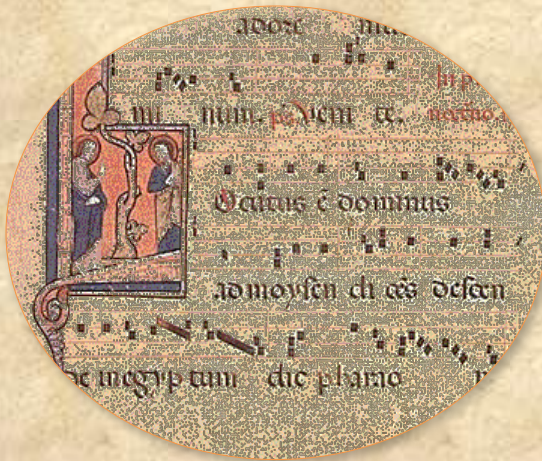 adore
mi num. ps Veni te.
Ocutus ē dominus
ad moysen di cēs descen
de in egyp tum dic pharao